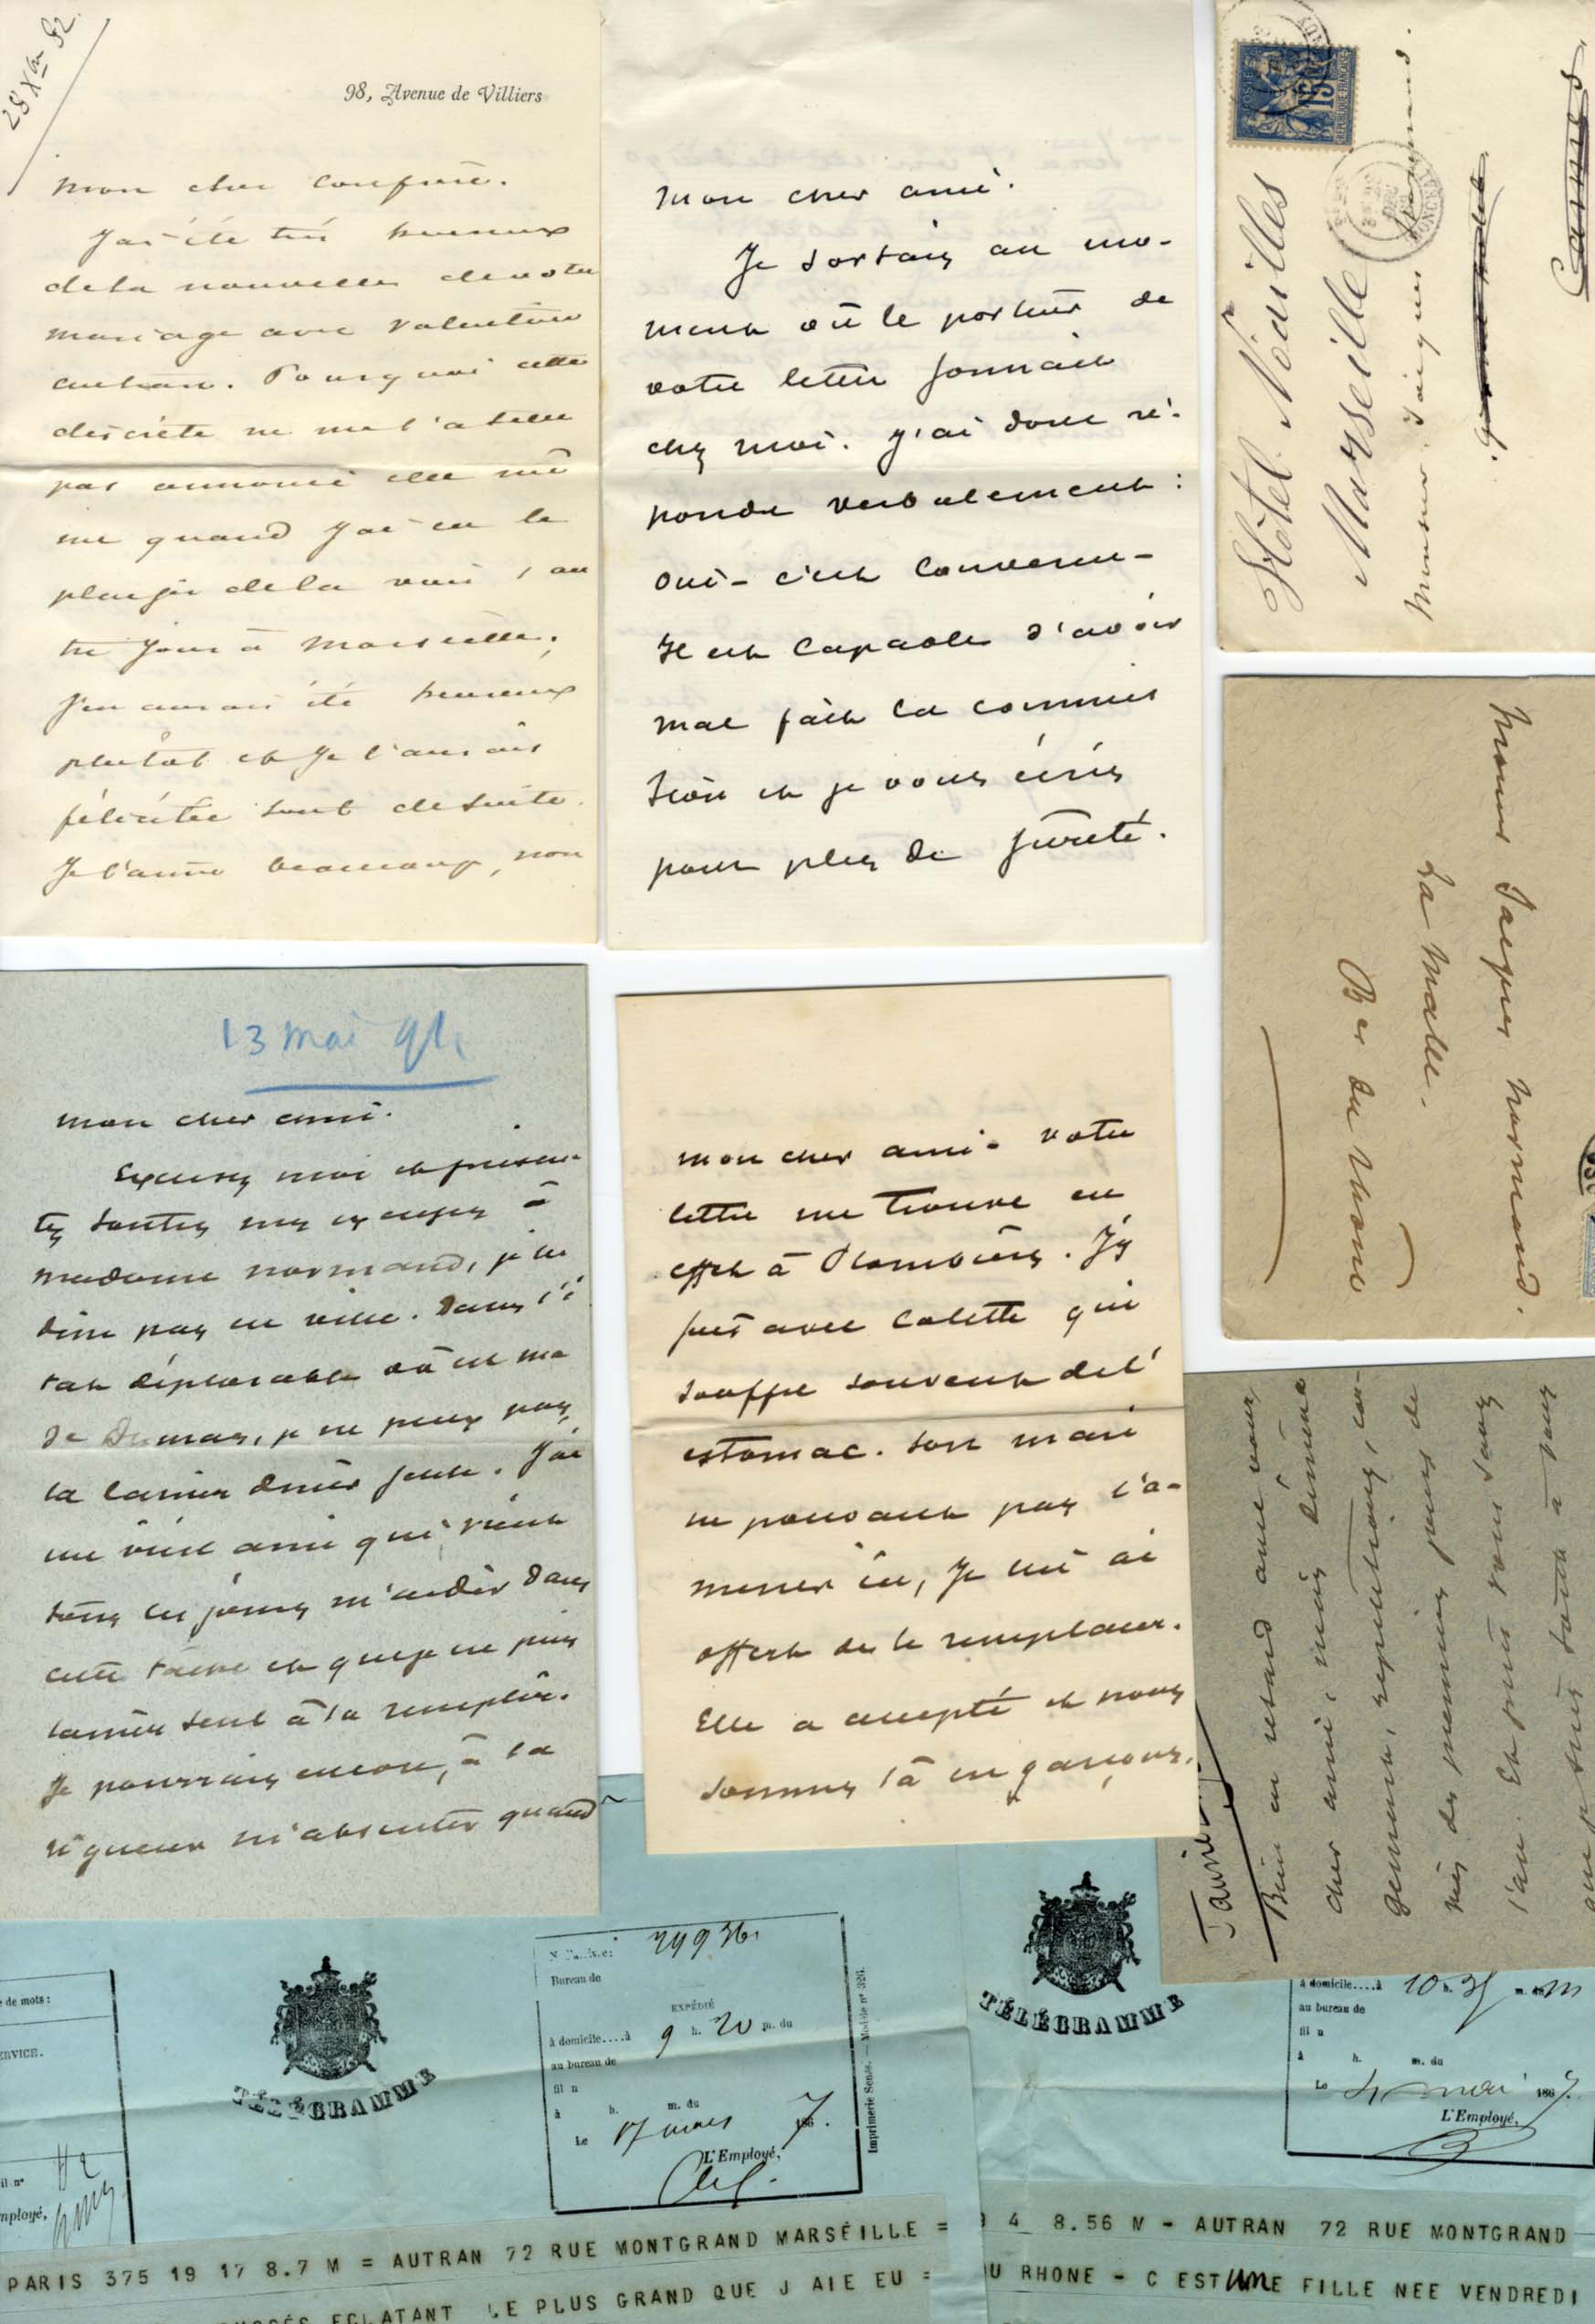 28 Xbre 82
98, Avenue de Villiers
Mon cher confrère.
J'ai été très heureux
de la nouvelle de votre
mariage avec Valentine
Autran. Pourquoi cette
discrète ne me l'a telle
pas annoncé elle mê
me quand j'ai eu le
plaisir de la voir, l'au
tre jour à Marseille;
j'en aurais été heureux
plutôt et je l'aurais
félicitée tout de suite.
Je l'aime beaucoup, non
Mon cher ami.
Je sortais au mo-
ment où le porteur de
votre lettre sonnait
chez moi. J'ai donc ré-
pondu verbalement :
oui - c'est convenu -
Il est capable d'avoir
mal fait la commis
sion et je vous écris
pour plus de sûreté.
Cannes
Hôtel Noailles
Marseille
Monsieur Jacques Normand.
POSTES
15
REPUBLIQUE FRANCAISE
Monsieur Jacques Normand.
La Malle.
Bes du Rhone
13 mai 91.
Mon cher ami.
Excusez moi et présen-
tez toutes mes excuses à
Madame Normand, je ne
dîne pas en ville. Dans l'é
tat déplorable où est Ma
de Dumas, je ne peux pas
la laisser dîner seule. J'ai
un vieil ami qui vient
tous les jours m'aider dans
cette tâche et que je ne puis
laisser seul à la remplir.
Je pourrais encore, à la
rigueur m'absenter quand
Mon cher ami - Votre
lettre me trouve en
effet à Plombières. J'y
suis avec Colette qui
souffre souvent de l'
estomac. Son mari
ne pouvant pas l'a-
mener ici, je lui ai
offert de le remplacer.
Elle a accepté et nous
sommes là en garçons,
Bien en retard avec vous
cher ami, mais déména
gement, répétitions, en-
nuis des premiers jours de
l'an. Et puis vous savez
que je suis tout à vous
de mots :
ERVICE.
il n°
mployé,
TÉLÉGRAMME
24936
Bureau de
EXPÉDIÉ
à domicile....à 9 h. 20 m. du
au bureau de
fil n
à h. m. du
Le 17 mars 1867.
L'Employé,
Imprimerie Senés. — Modèle n° 326.
TÉLÉGRAMME
à domicile....à 10 h. 35 m. du m
au bureau de
fil n
à h. m. du
Le 4 mai 1867.
L'Employé,
PARIS 375 19 17 8.7 M = AUTRAN 72 RUE MONTGRAND MARSEILLE =
ECLATANT LE PLUS GRAND QUE J AIE EU =
4 8.56 M - AUTRAN 72 RUE MONTGRAND
DU RHONE - C EST UNE FILLE NEE VENDREDI